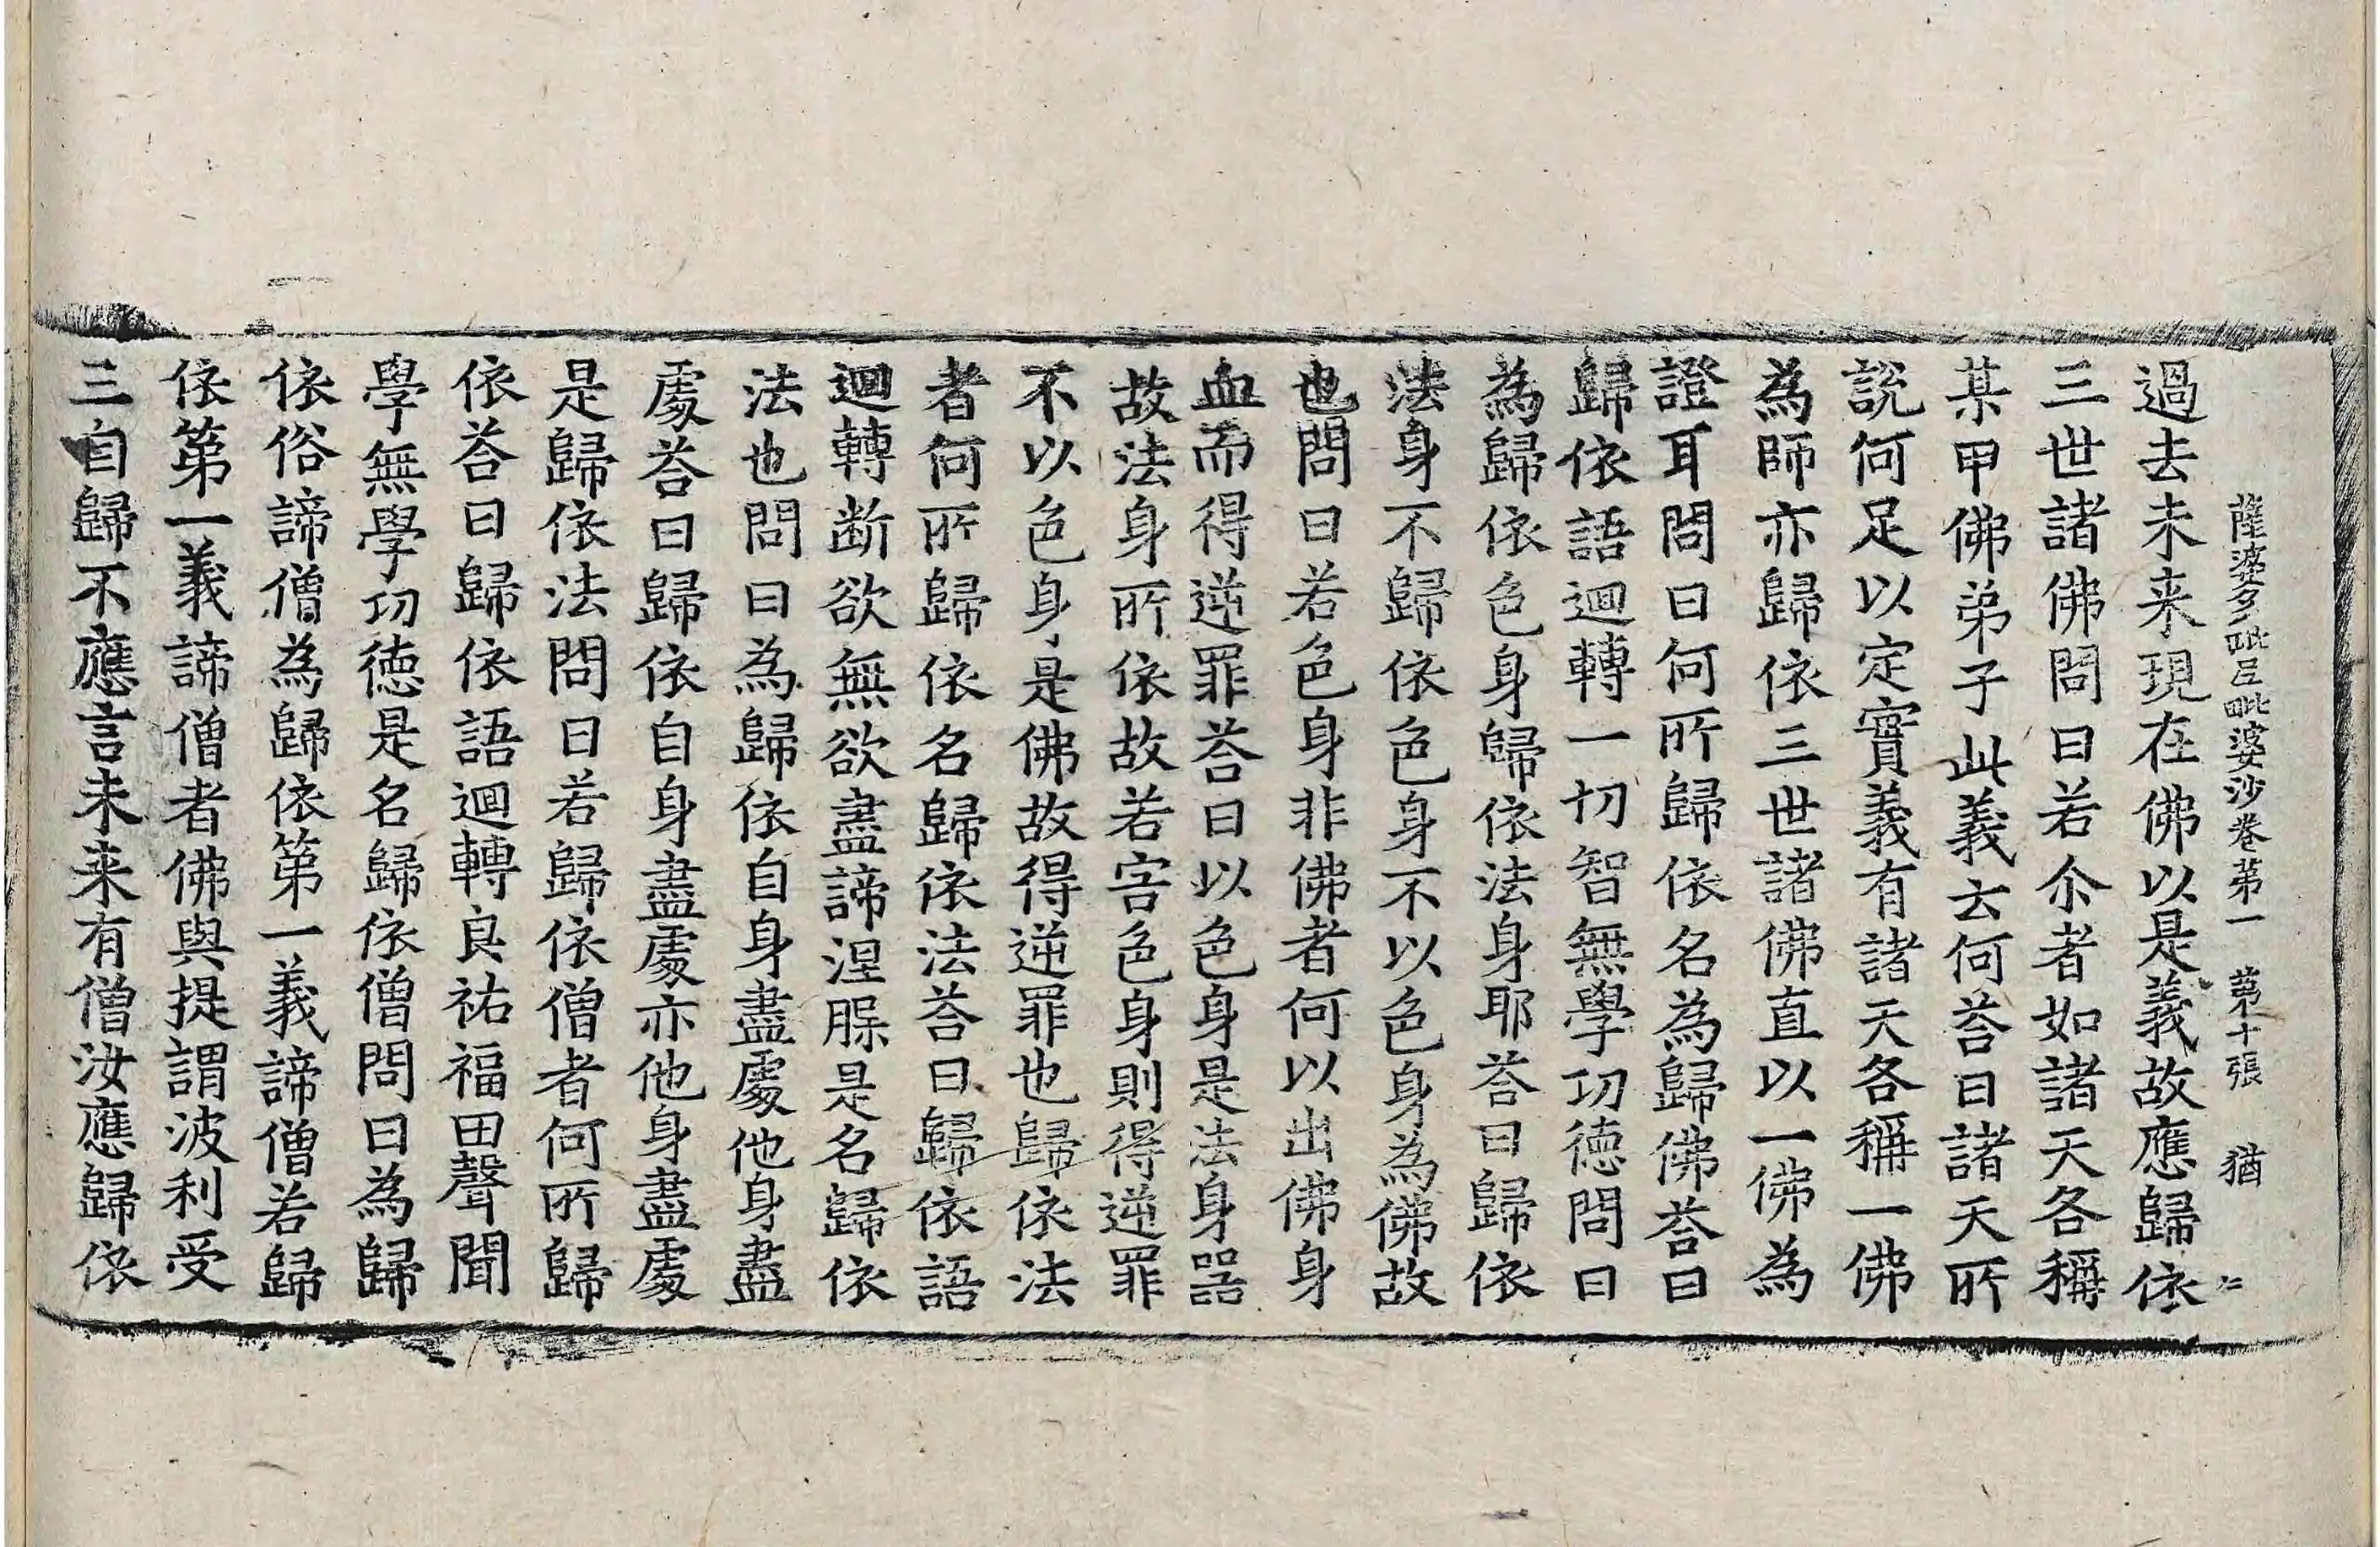 薩婆多毗尼毗婆沙卷第一 第十張 猶 仁
過去未来現在佛以是義故應歸依
三世諸佛問曰若尒者如諸天各稱
某甲佛弟子此義云何荅曰諸天所
說何足以定實義有諸天各稱一佛
為師亦歸依三世諸佛直以一佛為
證耳問曰何所歸依名為歸佛荅曰
歸依語迴轉一切智無學功德問曰
為歸依色身歸依法身耶荅曰歸依
法身不歸依色身不以色身為佛故
也問曰若色身非佛者何以出佛身
血而得逆罪荅曰以色身是法身器
故法身所依故若害色身則得逆罪
不以色身是佛故得逆罪也歸依法
者何所歸依名歸依法荅曰歸依語
迴轉断欲無欲盡諦涅槃是名歸依
法也問曰為歸依自身盡處他身盡
處荅曰歸依自身盡處亦他身盡處
是歸依法問曰若歸依僧者何所歸
依荅曰歸依語迴轉良祐福田聲聞
學無學功德是名歸依僧問曰為歸
依俗諦僧為歸依第一義諦僧若歸
依第一義諦僧者佛與提謂波利受
三自歸不應言未来有僧汝應歸依